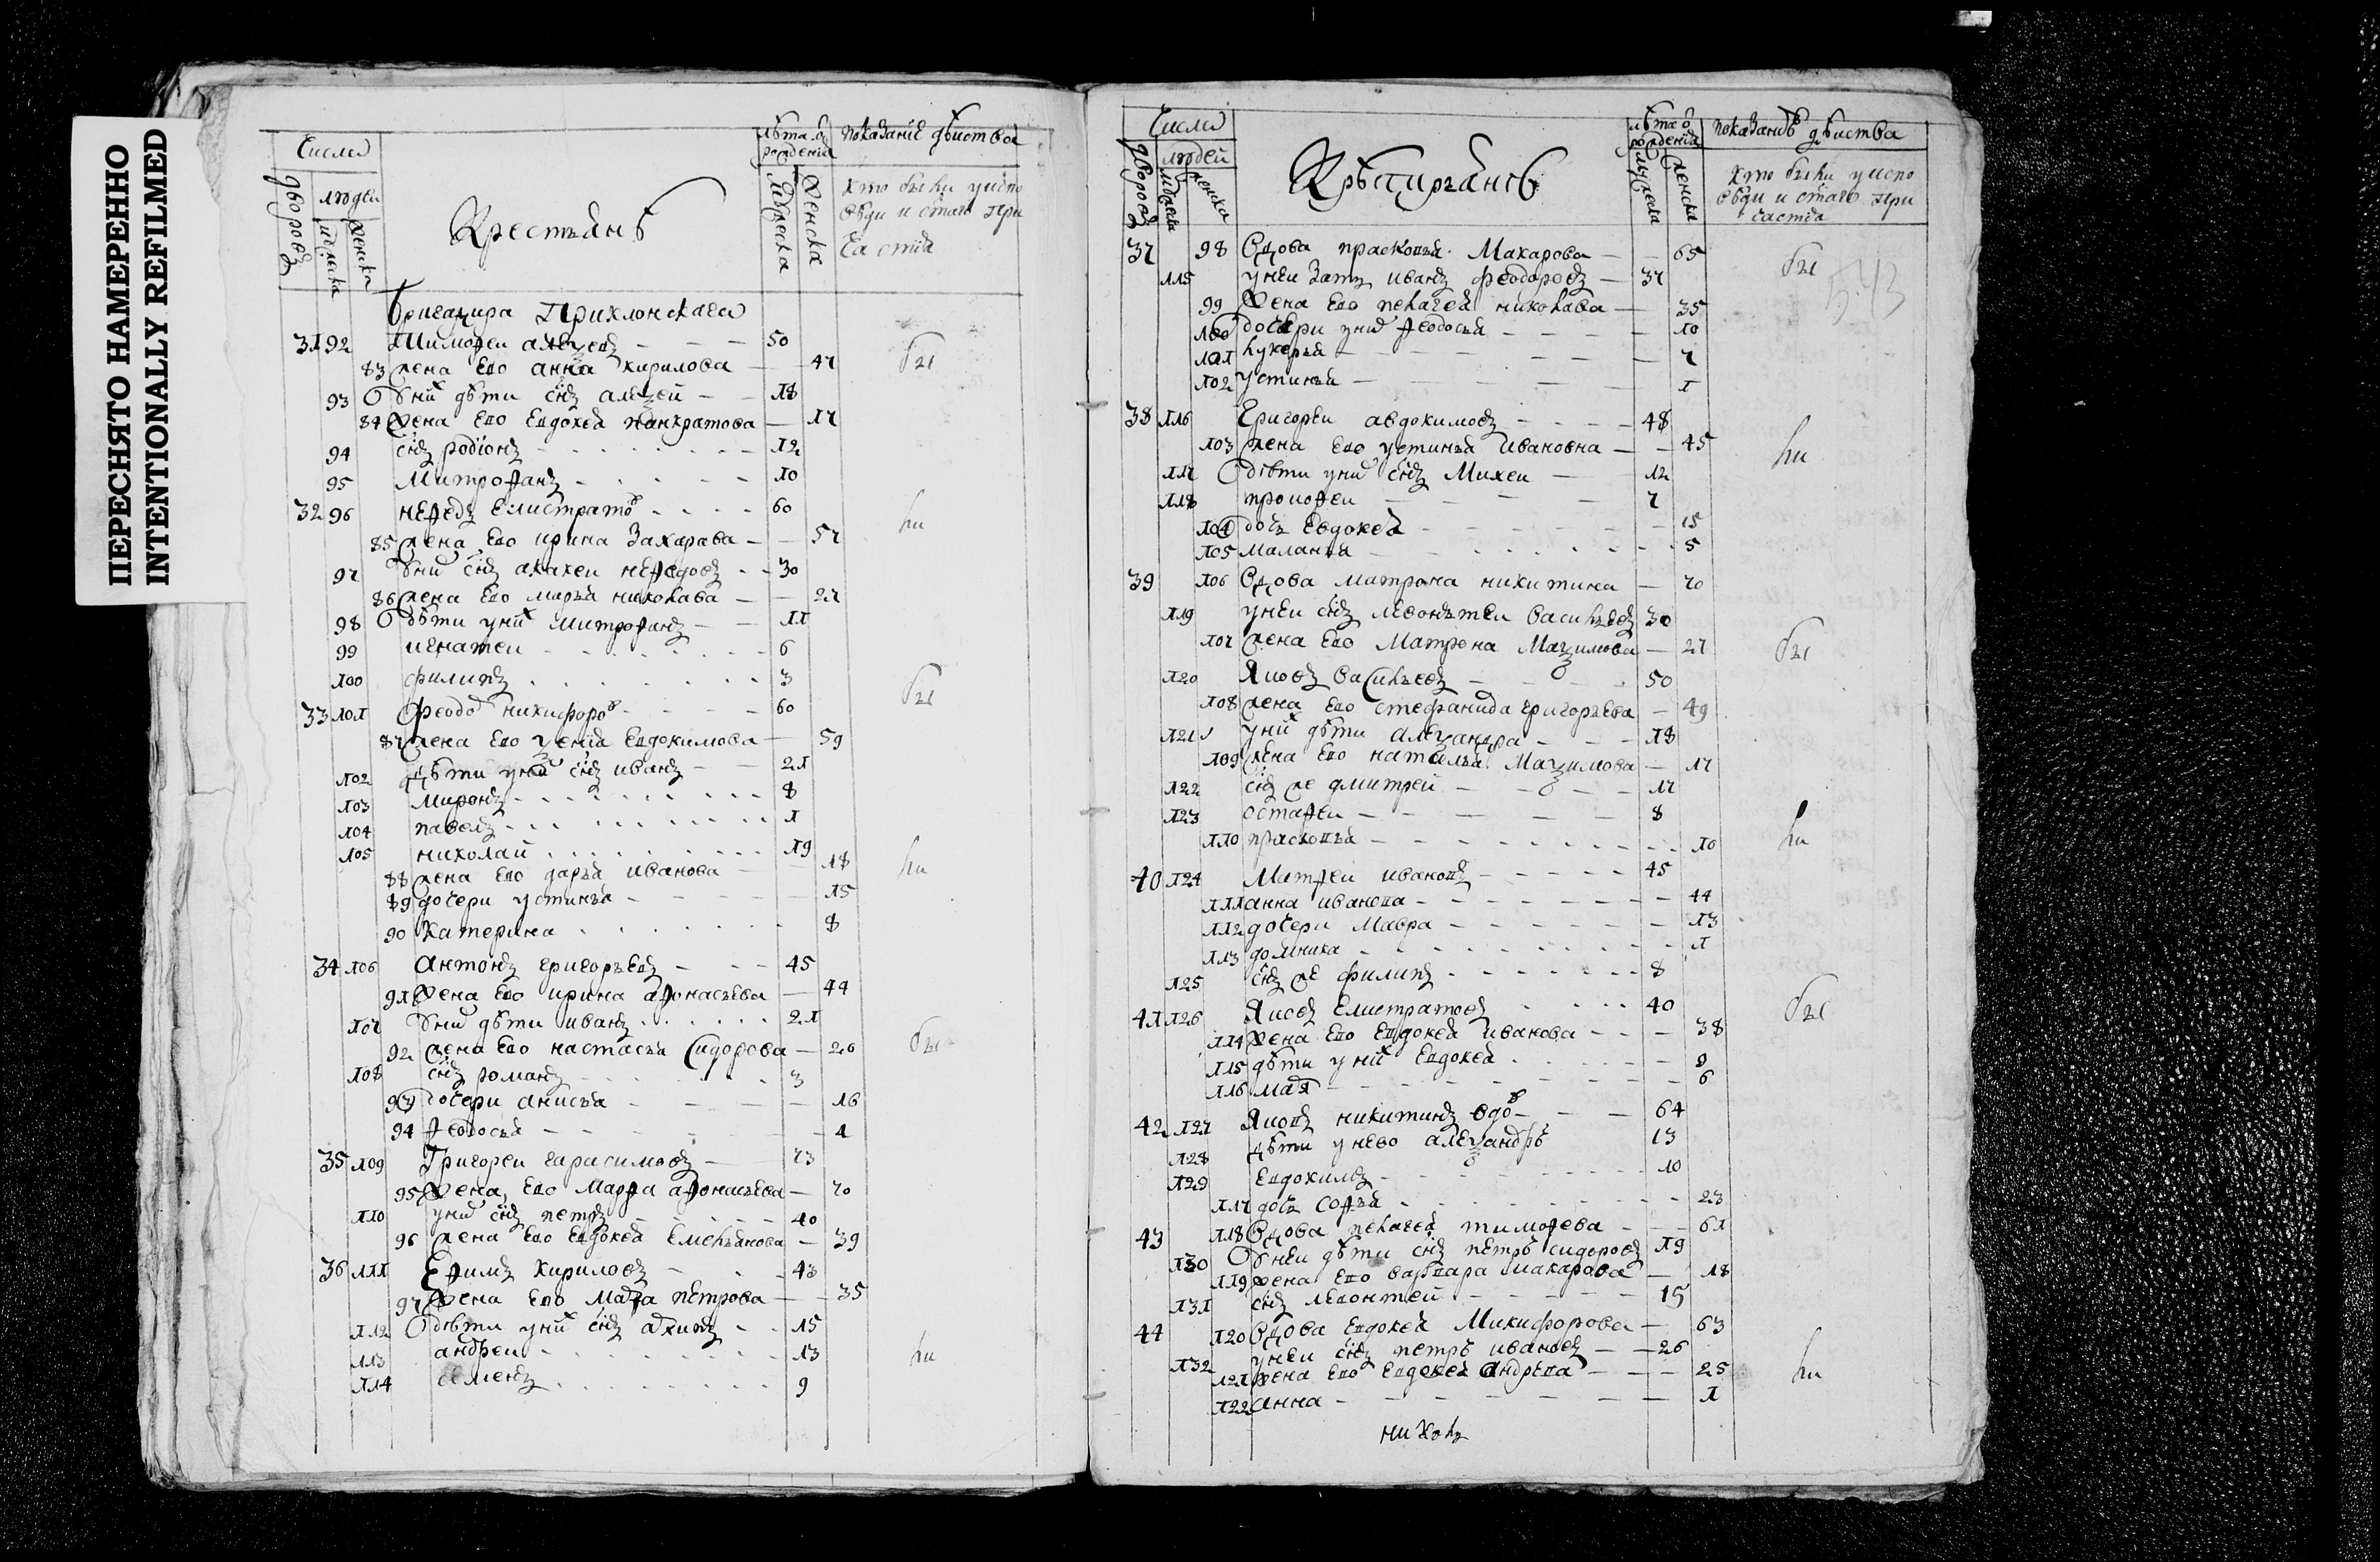 ПЕРЕСНЯТО НАМЕРЕННО
INTENTIONALLY REFILMED
Число
дворовъ
людей
мужеска
женска
Крестьянъ
лѣта от рождения
мужеска
женска
показание дѣйства
кто были у испо
вѣди и стаго при
частия
Бригадира Приклонскаго
31 92 Тимофеи алеѯеевъ 50
83 жена его анна кирилова 47
бы
93 у них дѣти снъ алеѯей 18
84 жена его Евдокея панкратова 17
94 снъ родионъ 12
95 Митрофанъ 10
32 96 нефедъ Елистратов 60
ли
85 жена его ирина Захарава 57
97 у них снъ акакеи нефедовъ 30
86 жена его марья николава 27
98 дѣти у них митрофанъ 11
99 игнатеи 6
100 филипъ 3
бы
33 101 феодо никифоров 60
87 жена его ѯения Евдокимова 59
102 дѣти у них снъ иванъ 21
103 миронъ 8
104 павелъ 1
105 николай 19
88 жена его дарья иванова 18
ли
89 дочери устинья 15
90 катерина 8
34 106 антонъ григорьевъ 45
91 жена его ирина афонасьева 44
107 у них дѣти иванъ 21
92 жена его настасья сидорова 26
бы
108 снъ романъ 3
93 дочери анисья 16
94 феодосья 4
35 109 Григореи гарасимовъ 73
95 жена его Марфа афонасьева 70
110 у них снъ петръ 40
96 жена его Евдокея Емельянова 39
36 111 Ефимъ кириловъ 43
97 жена его Марфа петрова 35
112 дѣти у них снъ архипъ 15
113 андреи 13
ли
114 семенъ 9
Число
дворовъ
людей
мужеска
женска
Крѣстьянъ
лѣта о рождения
мужеска
женска
показанѣ дѣиства
кто были у испо
вѣди и стаго при
частия
543
37 98 вдова прасковья Макарова 65
бы
115 у неи зать иванъ феодоровъ 37
99 жена его пелагея николава 35
100 дочери у них феодосья 10
101 лукерья 7
102 устинья 1
38 116 Григореи авдокимовъ 48
103 жена его устинья ивановна 45
ли
117 дѣти у них снъ Михеи 12
118 промофеи 7
104 дочь Евдокея 15
105 маланья 5
39 106 вдова матрона никитина 70
119 у неи снъ леонътеи васильевъ 30
107 жена его Матрона Маѯимова 27
бы
120 Яковъ васильевъ 50
108 жена его стефанида григорьева 49
121 у них дѣти алеѯандра 18
109 жена его наталья Маѯимова 17
122 снъ же дмитрей 17
123 остафеи 8
110 прасковья 10
ли
40 124 Матфеи ивановъ 45
111 анна иванова 44
112 дочери Мавра 13
113 домника 1
125 снъ же филипъ 8
41 126 Яковъ Елистратовъ 40
бы
114 жена его Евдокея иванова 38
115 дѣти у них Евдокея 9
116 мафя 6
42 127 Яковъ никитинъ вдов 64
128 дѣти у нево алеѯандръ 13
129 Евдокимъ 10
117 дочь софья 23
43 118 вдова пелагея тимофева 61
130 у неи дѣти снъ петръ сидоровъ 19
119 жена его варвара макарова 18
131 снъ левонтей 15
44 120 вдова Евдокея Микифорова 63
132 у неи снъ петръ ивановъ 26
121 жена его Евдокея андрѣва 25
ли
122 анна 1
николъ